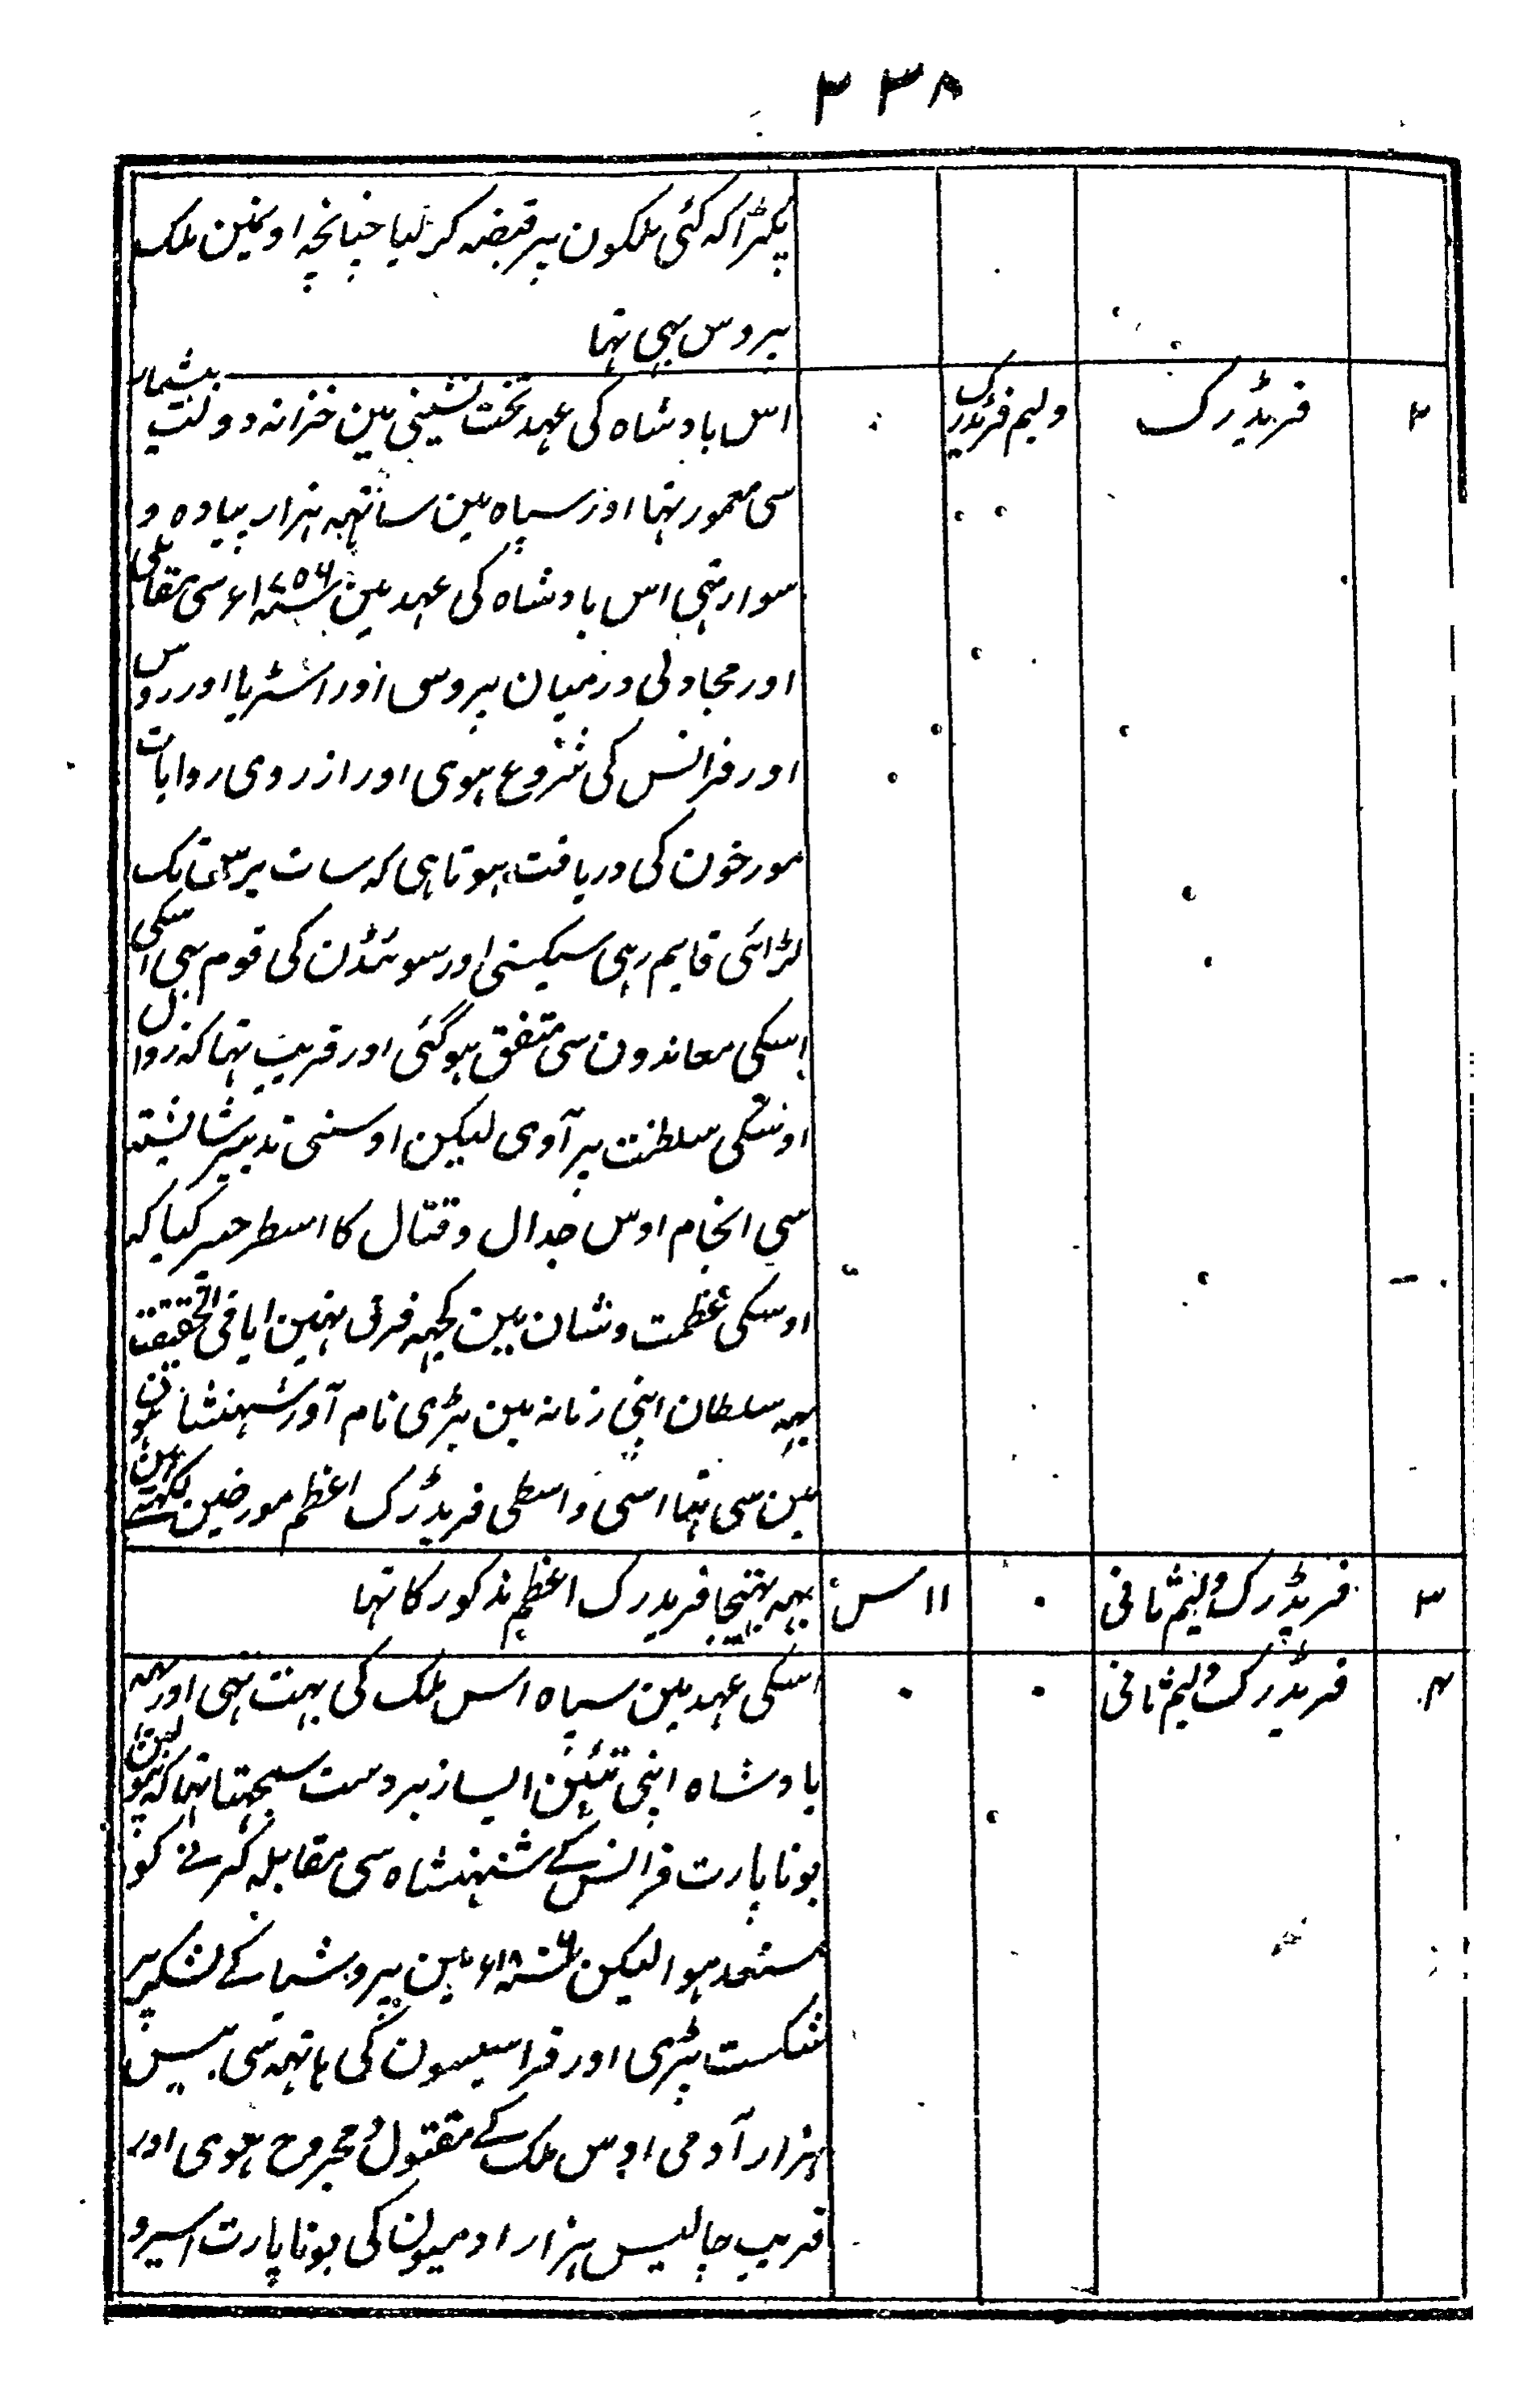 ۲۳۸
پکڑا کہ کئی ملکون پر قبضہ کر لیا چنانچہ اونہین ملک
پروس بہی تہا
۲ فریڈرک ولیم فریڈرک اس بادشاہ کی عہد تخت نشینی مین خزانہ دولت بیشمار
سی معمور تہا اور سپاہ مین ساٹہہ ہزار پیادہ و
سوار تہی اس بادشاہ کی عہد مین سنہ ۱۷۵۶ء سی مقابلی
اور مجادلی درمیان پروس اور اسٹریا اور روس
اور فرانس کی شروع ہوی اور از روی روایات
مورخون کی دریافت ہوتا ہی کہ سات برس تک
لڑائی قایم رہی سیکسنی اور سوئڈن کی قوم بہی اسکی
اسکی معاندون سی متفق ہو گئی اور قریب تہا کہ زوال
اوسکی سلطنت پر آوی لیکن اوسنی تدبیر شایستہ
سی انجام اوس جدال و قتال کا اسطرحپر کیا کہ
اوسکی عظمت و شان مین کچہہ فرق نہین ایا فی الحقیقت
یہہ سلطان اپنی زمانہ مین بڑی نام آور شہنشاہون
مین سی تہا اسی واسطی فریڈرک اعظم مورخین لکہتے ہین
۳ فریڈرک ولیم ثانی ۰ ۱۱ س یہہ بہتیجا فریدرک اعظم مذکور کا تہا
۴ فریڈرک ولیم ثانی ۰ ۰ اسکی عہد مین سپاہ اس ملک کی بہت تہی اور یہہ
بادشاہ اپنی تئین ایسا زبردست سمجہتا تہا کہ نپولین
بوناپارت فرانس کے شہنشاہ سی مقابلہ کرنے کو
مستعد ہوا لیکن سنہ ۱۸۰۶ء مین پروشیا کے لشکر پر
شکست پڑی اور فراسیسون کی ہاتہہ سی بیس
ہزار آدمی اوس ملک کے مقتول و مجروح ہوی اور
قریب چالیس ہزار ادمیون کی بوناپارت اسیر و